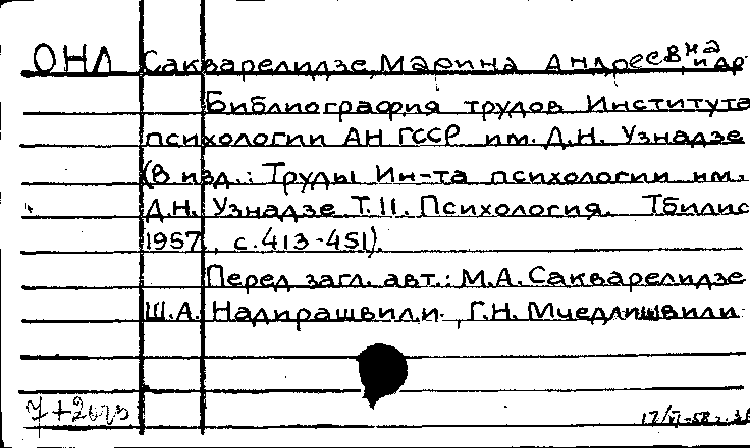 ОНЛ Сакварелидзе, Марина Андреевна и др
Библиография трудов Института
психологии АН ГССР им. Д.Н. Узнадзе
(В изд.: Труды Ин-та психологии им.
Д.Н. Узнадзе Т.11. Психология. Тбилис
1957, с.413-451).
Перед загл. авт.: М.А. Сакварелидзе
Ш.А. Надирашвили, Г.Н. Мчедлишвили
17/VI-58г.